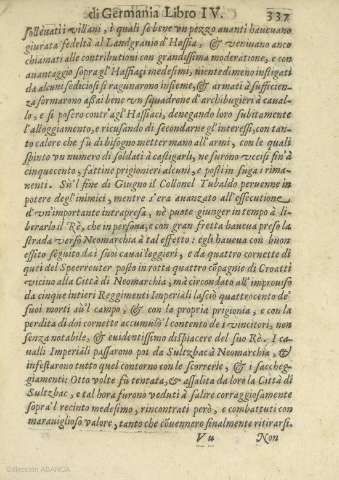 di Germania Libro IV. 337
sollevati i villani, i quali se bene vn pezzo avanti havevano
giurata fedeltà al Landgravio d'Hassia, & venivano anco
chiamati alle contributioni con grandissima moderatione, e con
avantaggio sopra gl'Hassiaci medesimi, niente di meno instigati
da alcuni sediciosi si ragunarono insieme, & armati à sufficien-
za formarono assai bene vn squadrone d'archibugieri à caval-
lo, e si posero contr'agl'Hassiaci, denegando loro subitamente
l'alloggiamento, e ricusando di secondarne gl'interessi, con tan-
to calore che fù di bisogno metter mano all'armi, con le quali
spinto vn numero di soldati à castigarli, ne furono vccisi fin'à
cinquecento, fattine prigionieri alcuni, e posti in fuga i rima-
nenti. Sù'l fine di Giugno il Collonel Tubaldo pervenne in
potere degl'inimici, mentre s'era avanzato all'essecutione
d'vn'importante intrapresa, nè puote giunger in tempo à li-
berarlo il Rè, che in persona, e con gran fretta haveva preso la
strada verso Neomarchia à tal effetto: egli haveva con buon
essito seguito dai suoi cavai leggieri, e da quattro cornette di
quei del Speerreuter posto in rotta quattro cõpagnie di Croatti
vicino alla Città di Neomarchia, mà circondato all'improviso
da cinque intieri Reggimenti Imperiali lasciò quattrocento de'
suoi morti sù'l campo, & con la propria prigionia, e con la
perdita di doi cornette accumulò'l contento de i vincitori, non
senza notabile, & evidentissimo dispiacere del suo Rè. I ca-
valli Imperiali passarono poi da Sultzbac à Neomarchia, &
infestarono tutto quel contorno con le scorrerie, & i saccheg-
giamenti: Otto volte fù tentata, & assalita da loro la Città di
Sultzbac, e tal hora furono veduti à salire corraggiosamente
sopra'l recinto medesimo, rincontrati però, e combattuti con
maraviglioso valore, tanto che cõvennero finalmente ritirarsi.
Vu Non
Colección ABANCA